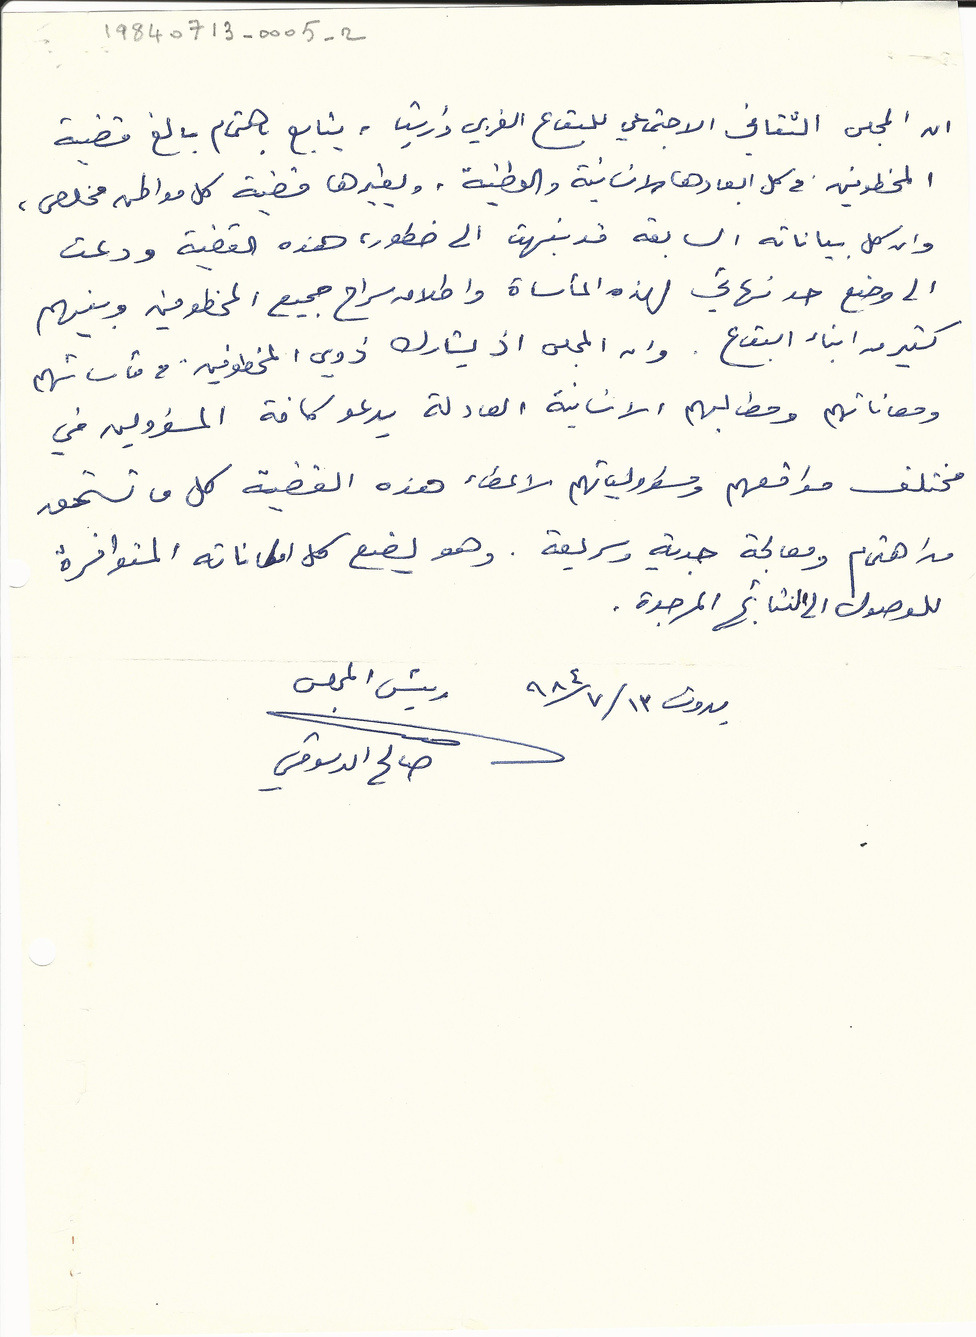 19840713-0005-2
ان المجلس الثقافي الاجتماعي للبقاع الغربي وراشيا ، يتابع باهتمام بالغ قضية
المخطوفين في كل ابعادها الانسانية والوطنية ، ويعتبرها قضية كل مواطن مخلص ،
وان كل بياناته السابقة قد نبهت الى خطورة هذه القضية ودعت
الى وضع حد نهائي لهذه المأساة واطلاق سراح جميع المخطوفين وبينهم
كثير من ابناء البقاع . وان المجلس اذ يشارك ذوي المخطوفين في مأساتهم
ومعاناتهم ومطالبهم الانسانية العادلة يدعو كافة المسؤولين في
مختلف مواقعهم ومسؤولياتهم لاعطاء هذه القضية كل ما تستحق
من اهتمام ومعالجة جدية وسريعة . وهو يضع كل امكاناته المتوافرة
للوصول الى النتائج المرجوة .
بيروت ١٣/٧/٩٨٤ رئيس المجلس
صالح الدسوقي